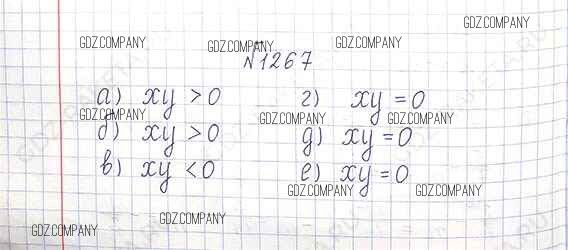 GDZ.COMPANY
GDZ.COMPANY GDZ.COMPANY GDZ.COMPANY
№1267
а) xy > 0 г) xy = 0
GDZ.COMPANY GDZ.COMPANY GDZ.COMPANY
б) xy > 0 д) xy = 0
в) xy < 0 е) xy = 0
GDZ.COMPANY GDZ.COMPANY
GDZ.COMPANY
GDZ.COMPANY